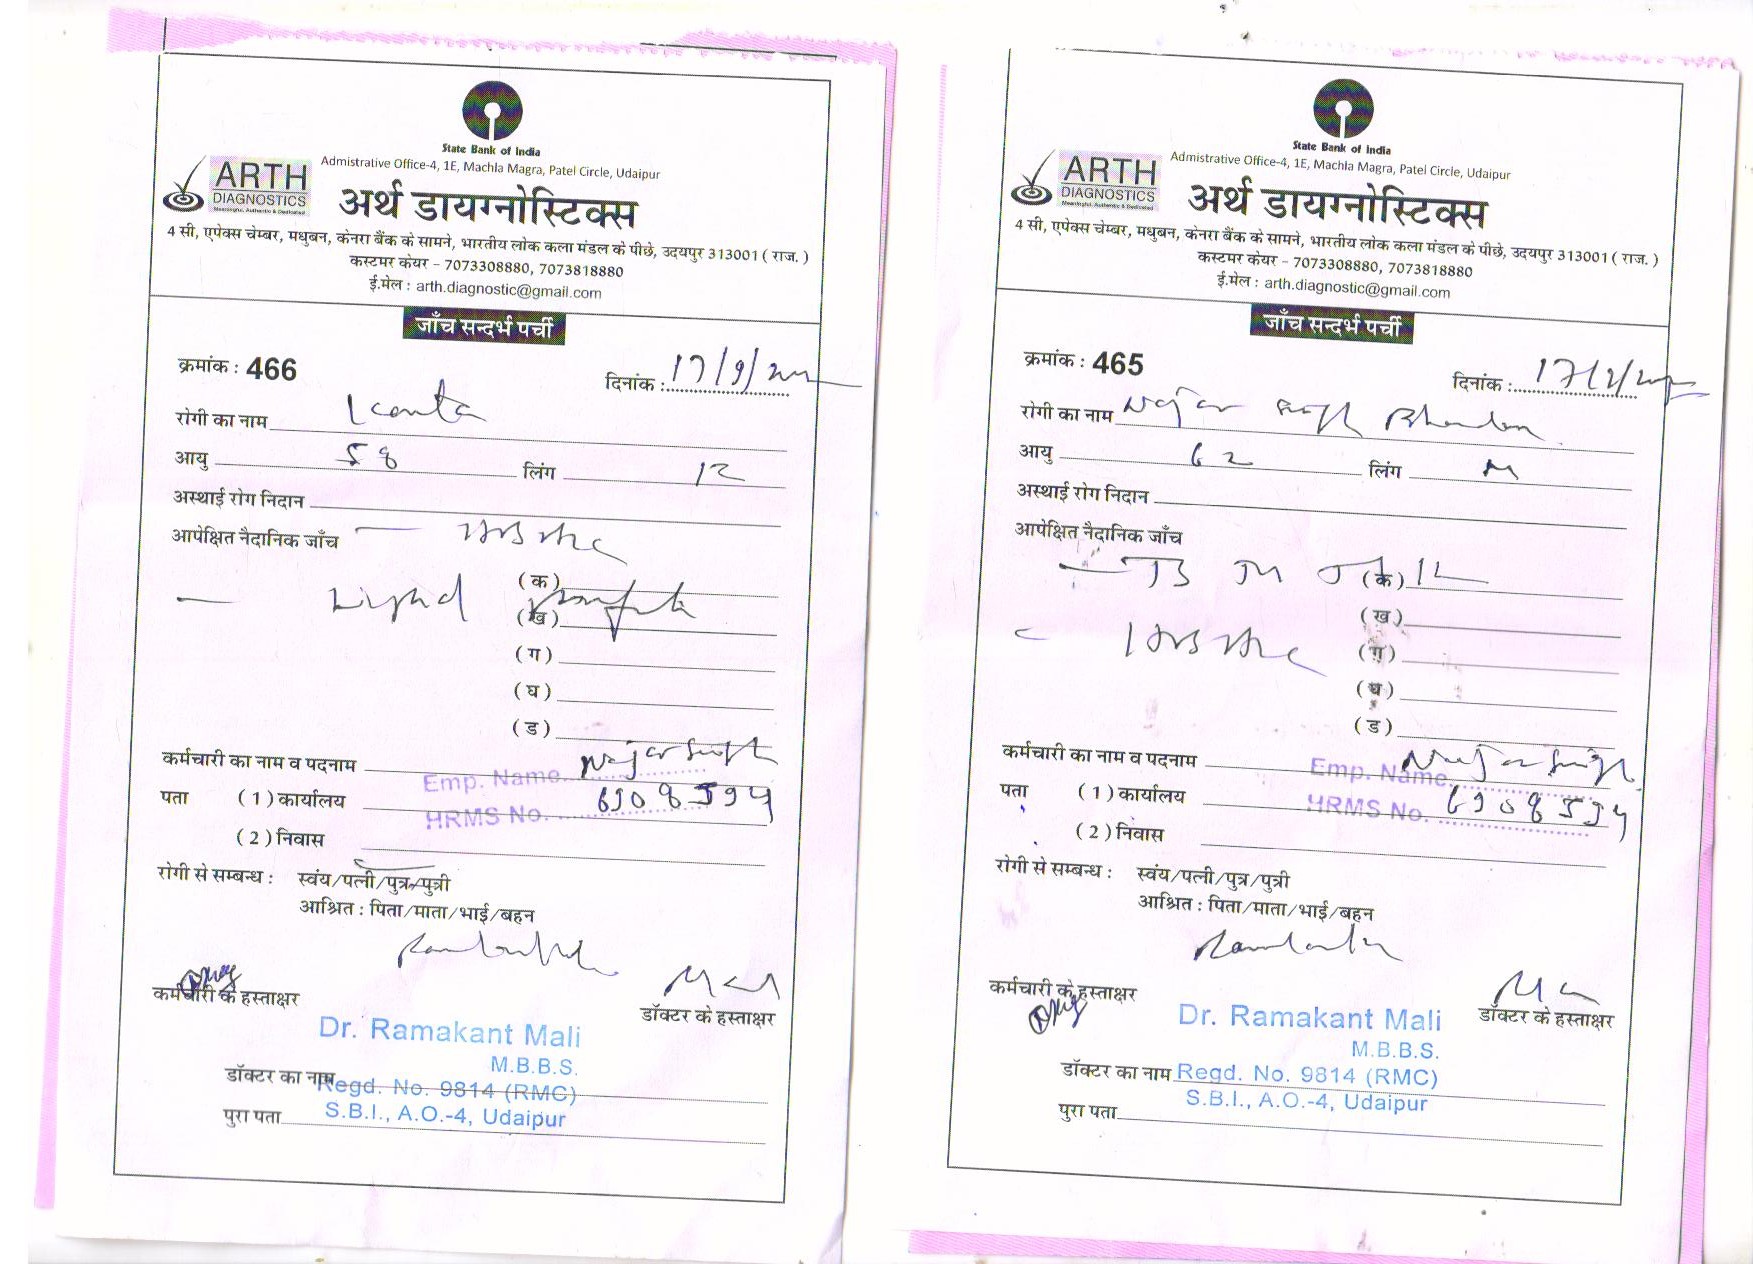 State Bank of India
Admistrative Office-4, 1E, Machla Magra, Patel Circle, Udaipur
ARTH
DIAGNOSTICS
Meaningful, Authentic & Dedicated
अर्थ डायग्नोस्टिक्स
4 सी, एपेक्स चेम्बर, मधुबन, केनरा बैंक के सामने, भारतीय लोक कला मंडल के पीछे, उदयपुर 313001 ( राज. )
कस्टमर केयर - 7073308880, 7073818880
ई.मेल : arth.diagnostic@gmail.com
जाँच सन्दर्भ पर्ची
क्रमांक : 466
दिनांक : 17/9/
रोगी का नाम Kanta
आयु 58 लिंग
अस्थाई रोग निदान
आपेक्षित नैदानिक जाँच
(क)
Lipid
(ख)
(ग)
(घ)
(ड)
कर्मचारी का नाम व पदनाम
Emp. Name
पता (1) कार्यालय 6908594
HRMS No.
(2) निवास
रोगी से सम्बन्ध : स्वंय/पत्नी/पुत्र/पुत्री
आश्रित : पिता/माता/भाई/बहन
कर्मचारी के हस्ताक्षर
डॉक्टर के हस्ताक्षर
Dr. Ramakant Mali
M.B.B.S.
डॉक्टर का नाम Regd. No. 9814 (RMC)
S.B.I., A.O.-4, Udaipur
पुरा पता
State Bank of India
Admistrative Office-4, 1E, Machla Magra, Patel Circle, Udaipur
ARTH
DIAGNOSTICS
Meaningful, Authentic & Dedicated
अर्थ डायग्नोस्टिक्स
4 सी, एपेक्स चेम्बर, मधुबन, केनरा बैंक के सामने, भारतीय लोक कला मंडल के पीछे, उदयपुर 313001 ( राज. )
कस्टमर केयर - 7073308880, 7073818880
ई.मेल : arth.diagnostic@gmail.com
जाँच सन्दर्भ पर्ची
क्रमांक : 465
दिनांक :
रोगी का नाम
आयु 62 लिंग M
अस्थाई रोग निदान
आपेक्षित नैदानिक जाँच
(क)
(ख)
(ग)
(घ)
(ड)
कर्मचारी का नाम व पदनाम
Emp. Name
पता (1) कार्यालय 6908594
HRMS No.
(2) निवास
रोगी से सम्बन्ध : स्वंय/पत्नी/पुत्र/पुत्री
आश्रित : पिता/माता/भाई/बहन
कर्मचारी के हस्ताक्षर
डॉक्टर के हस्ताक्षर
Dr. Ramakant Mali
M.B.B.S.
डॉक्टर का नाम Regd. No. 9814 (RMC)
S.B.I., A.O.-4, Udaipur
पुरा पता